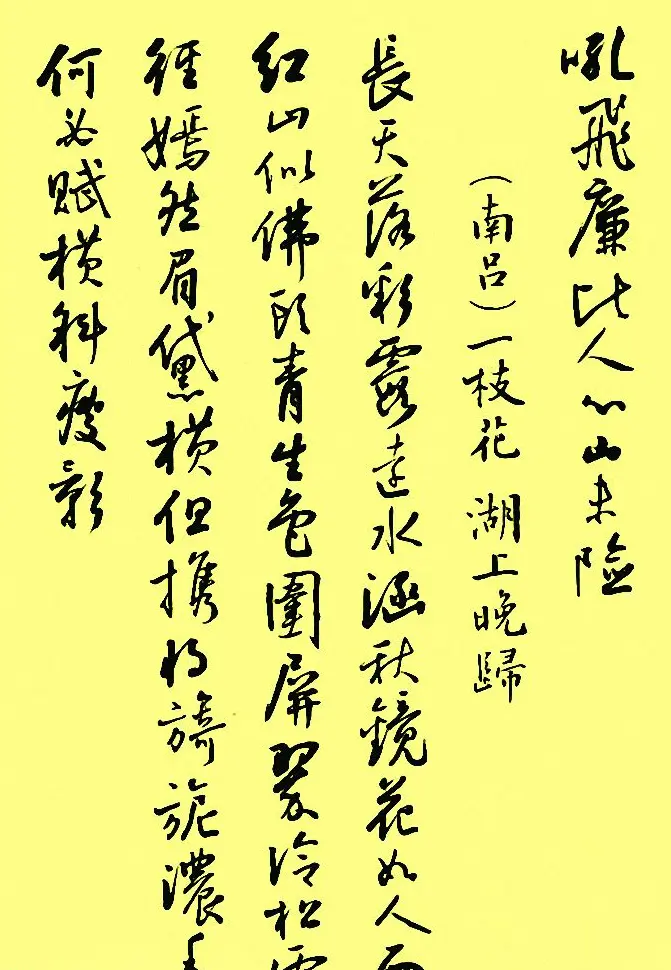 吼飛廉比人心山未險
(南呂)一枝花 湖上晚歸
長天落彩霞遠水涵秋鏡花如人面
紅山似佛頭青生色圍屏翠冷松雲
徑嫣然眉黛橫但攜將旖旎濃
何必賦橫斜瘦影